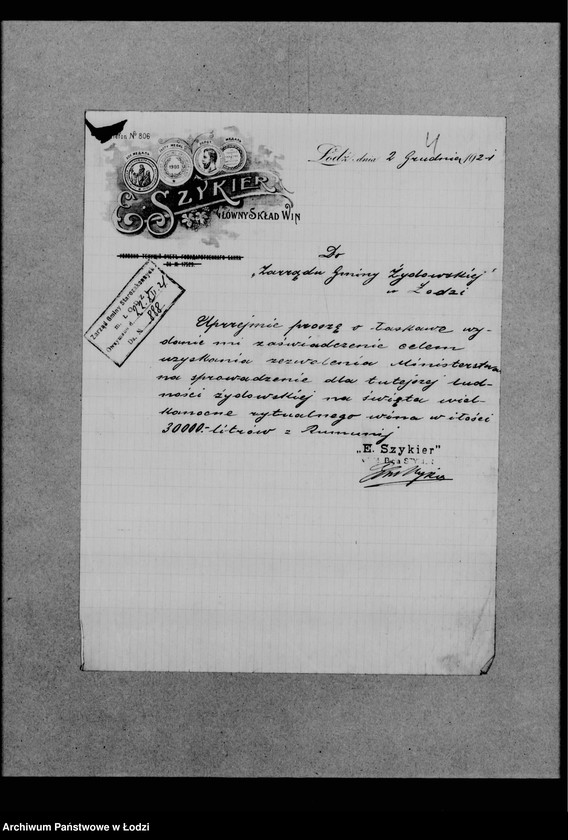 № 806
E. SZYKIER
GŁÓWNY SKŁAD WIN
4
Łódź, dnia 2 Grudnia 192
Do
„Zarządu Gminy Żydowskiej”
w Łodzi
Zarząd Gminy Starozakonnych
m. Łodzi
Otrzymano d. 12. XII. 21
Dz. № 888
Uprzejmie proszę o łaskawe wy-
danie mi zaświadczenie celem
uzyskania zezwolenia Ministerstwa
na sprowadzenie dla tutejszej lud-
ności żydowskiej na święta wiel-
kanocne rytualnego wina w ilości
30000.- litrów z Rumunij
„E. Szykier”
Archiwum Państwowe w Łodzi